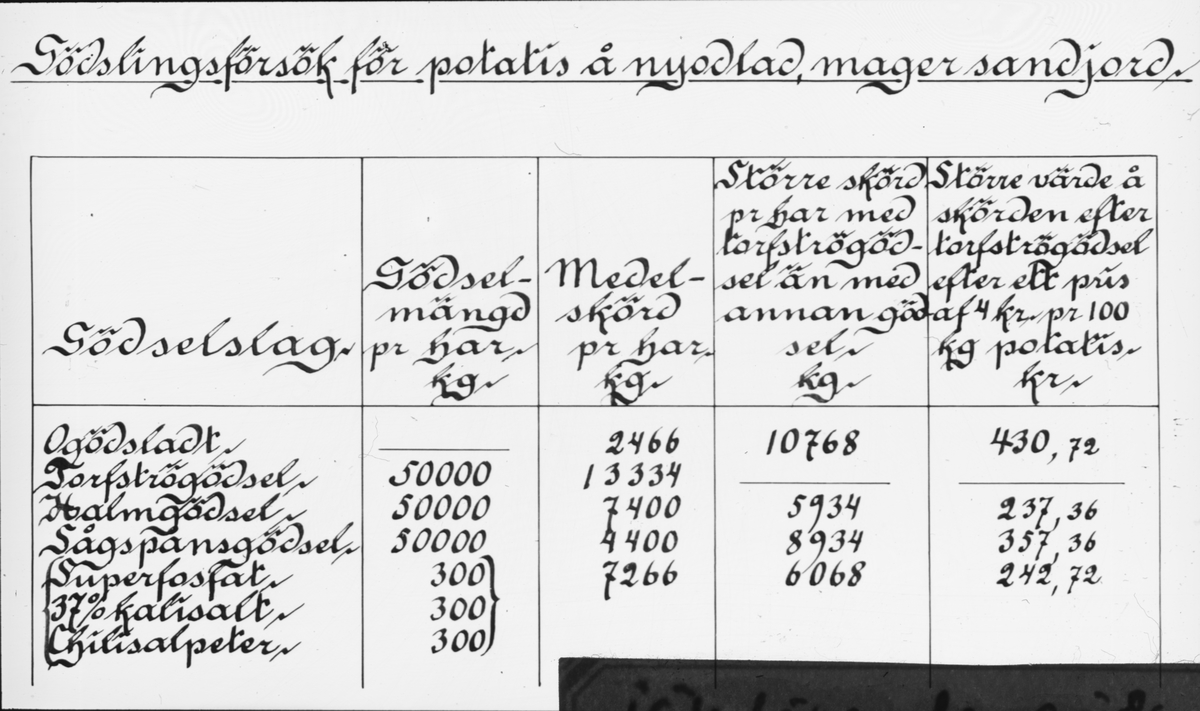 Gödslingsförsök för potatis å nyodlad, mager sandjord.
Gödselslag.
Gödsel-
mängd
pr har.
kg.
Medel-
skörd
pr har.
kg.
Större skörd
pr har med
torfströgöd-
sel än med
annan göd-
sel.
kg.
Större värde å
skörden efter
torfströgödsel
efter ett pris
af 4 kr. pr 100
kg potatis.
kr.
Ogödsladt. 2466 10768 430,72
Torfströgödsel. 50000 13334
Halmgödsel. 50000 7400 5934 237,36
Sågspånsgödsel. 50000 4400 8934 357,36
Superfosfat. 300 7266 6068 242,72
37% kalisalt. 300
Chilisalpeter. 300